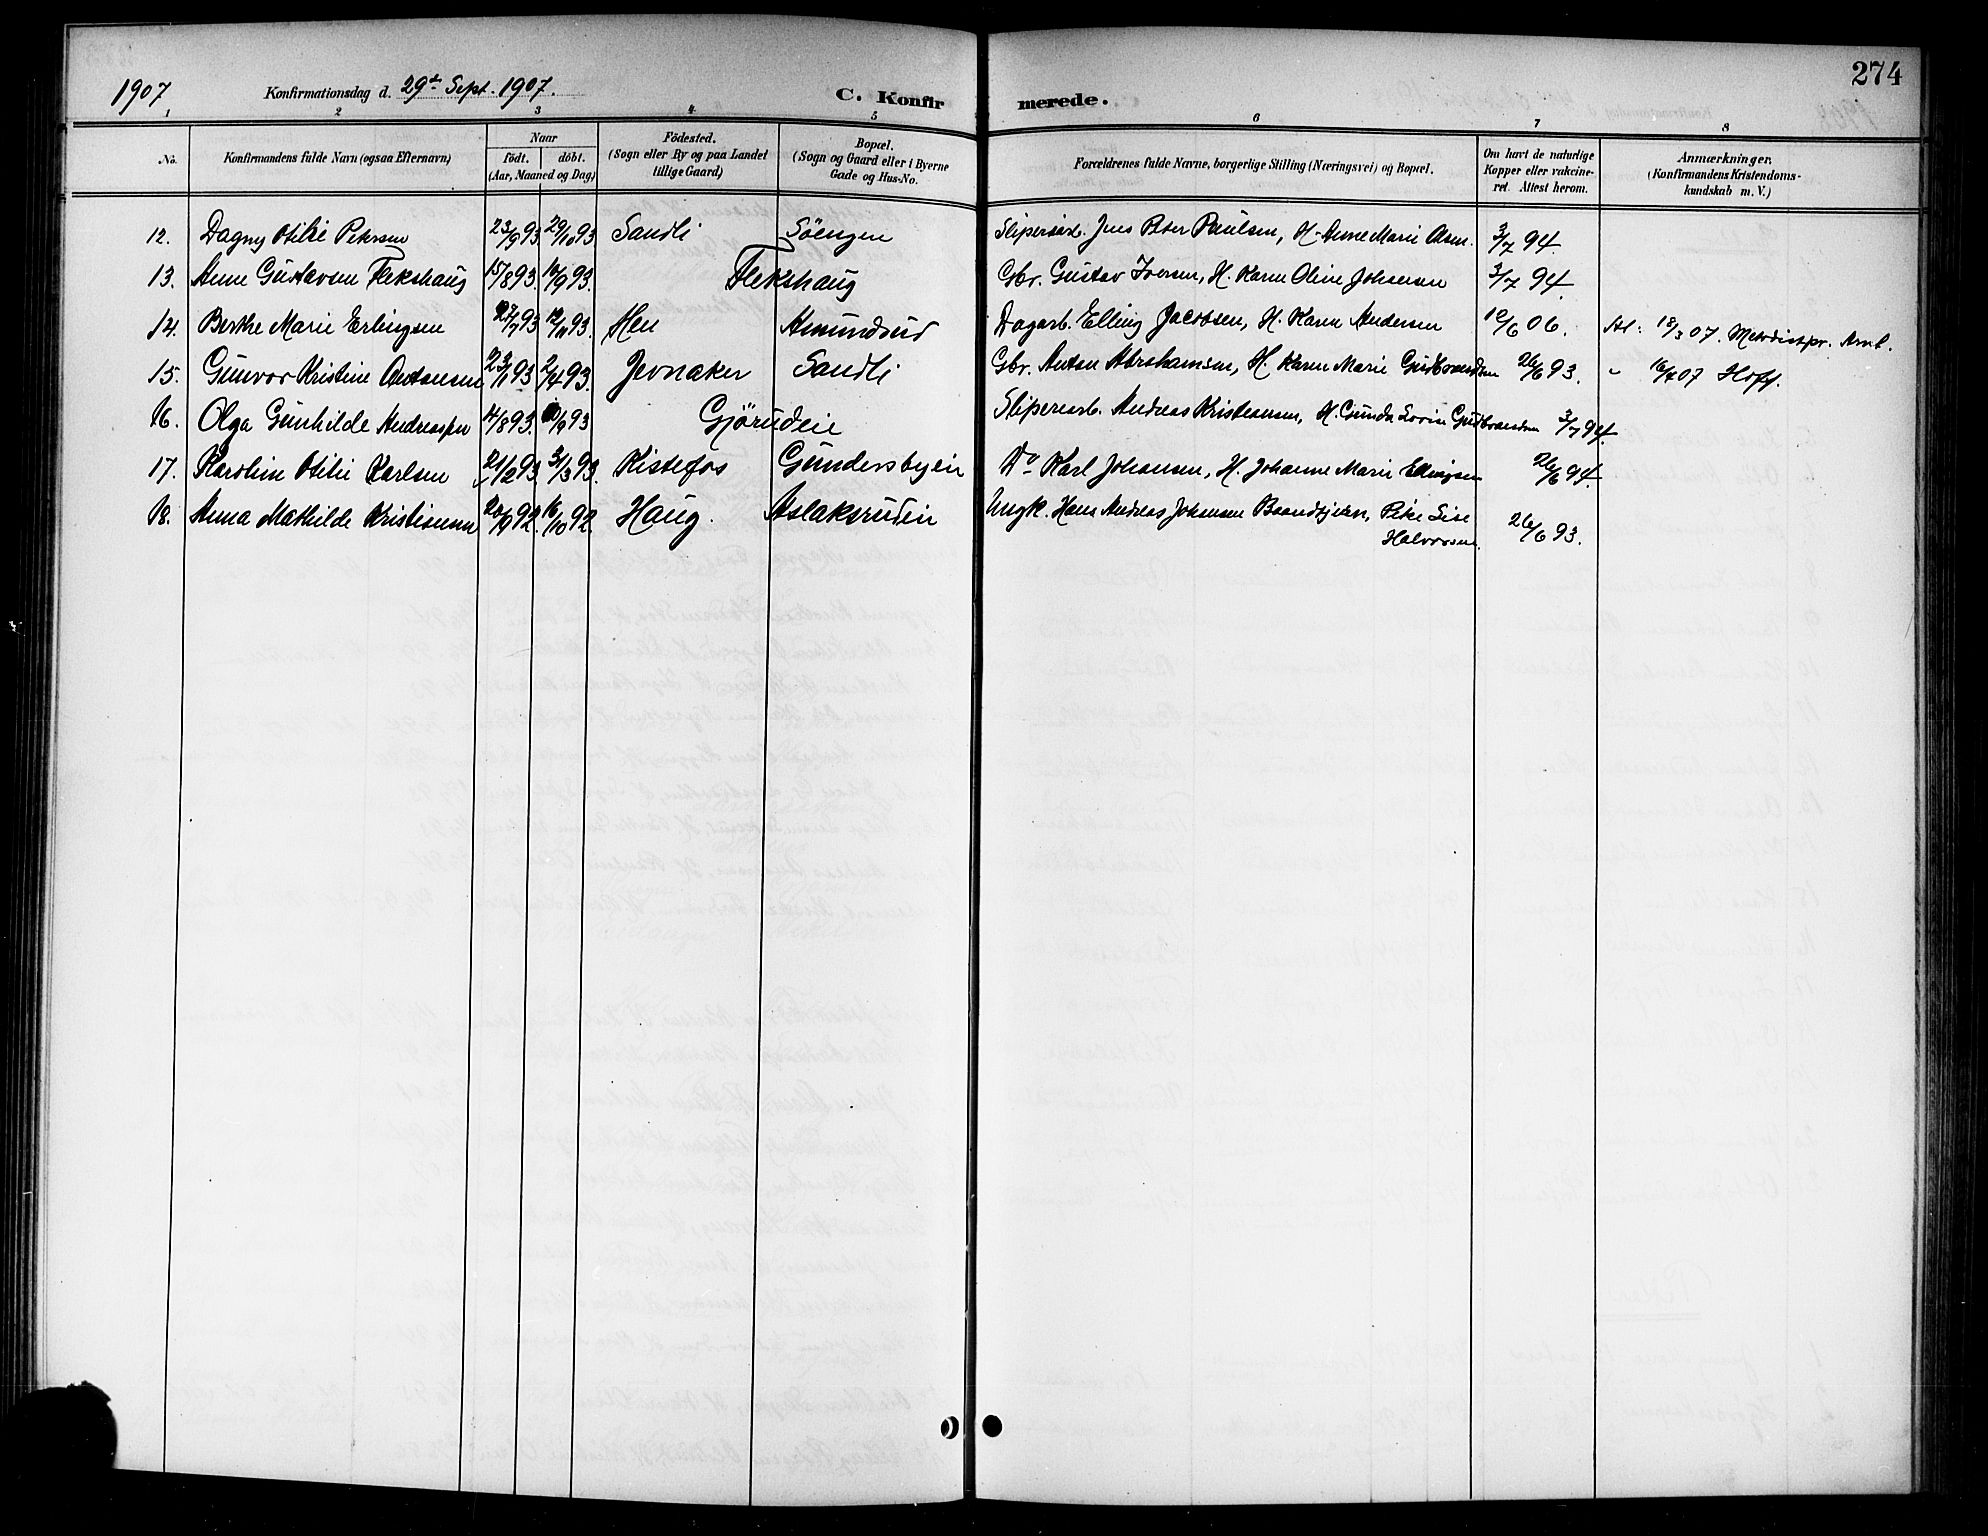 1907 Konfirmationsdag d. 29de Sept. 1907. C. Konfirmerede. 274
1 2 3 4 5 6 7 8
No. Konfirmandens fulde Navn (ogsaa Efternavn) Naar födt. döbt. (Aar, Maaned og Dag) Födested. (Sogn eller By og paa Landet tillige Gaard) Bopæl. (Sogn og Gaard eller i Byerne Gade og Hus-No. Forældrenes fulde Navne, borgerlige Stilling (Næringsvei) og Bopæl. Om havt de naturlige Kopper eller vakcineret. Attest herom. Anmærkninger. (Konfirmandens Kristendomskundskab m. V.)
12. Dagny Otilie Petersen 23/9 93 29/10 93 Sandli Söengen Sliperiarb. Jens Peter Paulsen, H. Anne Marie Asm. 3/7 94.
13. Anne Gustavsen Flekshaug 15/8 93. 10/9 93. Flekshaug Gbr. Gustav Iversen, H. Karen Oline Johansen 3/7 94.
14. Berthe Marie Erlingsen 93 12/11 93. Hen Amundsrud Dagarb. Elling Jacobsen, H. Karen Andersen 10/6 06. At: 18/3 07. Metodistpr. Arnt.
15. Gunvor Kristine Antonsen 23/1 93 2/4 93. Jevnaker Sandli Gbr. Anton Abrahamsen, H. Karen Marie Gudbrandsen 26/6 93. " 16/7 07 Hoff.
16. Olga Gunhilde Andreassen 14/8 93. 10/9 93 Gjörudeie Sliperiarb. Andreas Kristiansen, H. Gunda Lovise Gudbrandsen 3/7 94.
17. Karoline Otilie Karlsen 21/2 93. 31/3 93. Kistefos Gundersbyeie Do Karl Johansen, H. Johanne Marie Ellingsen 26/6 94.
18. Anna Mathilde Kristiansen 20/9 92. 16/10 92. Haug. Aslaksrudeie Ungk. Hans Andreas Johansen Brandtjern, Pike Lise
Halvorsen. 26/6 93.